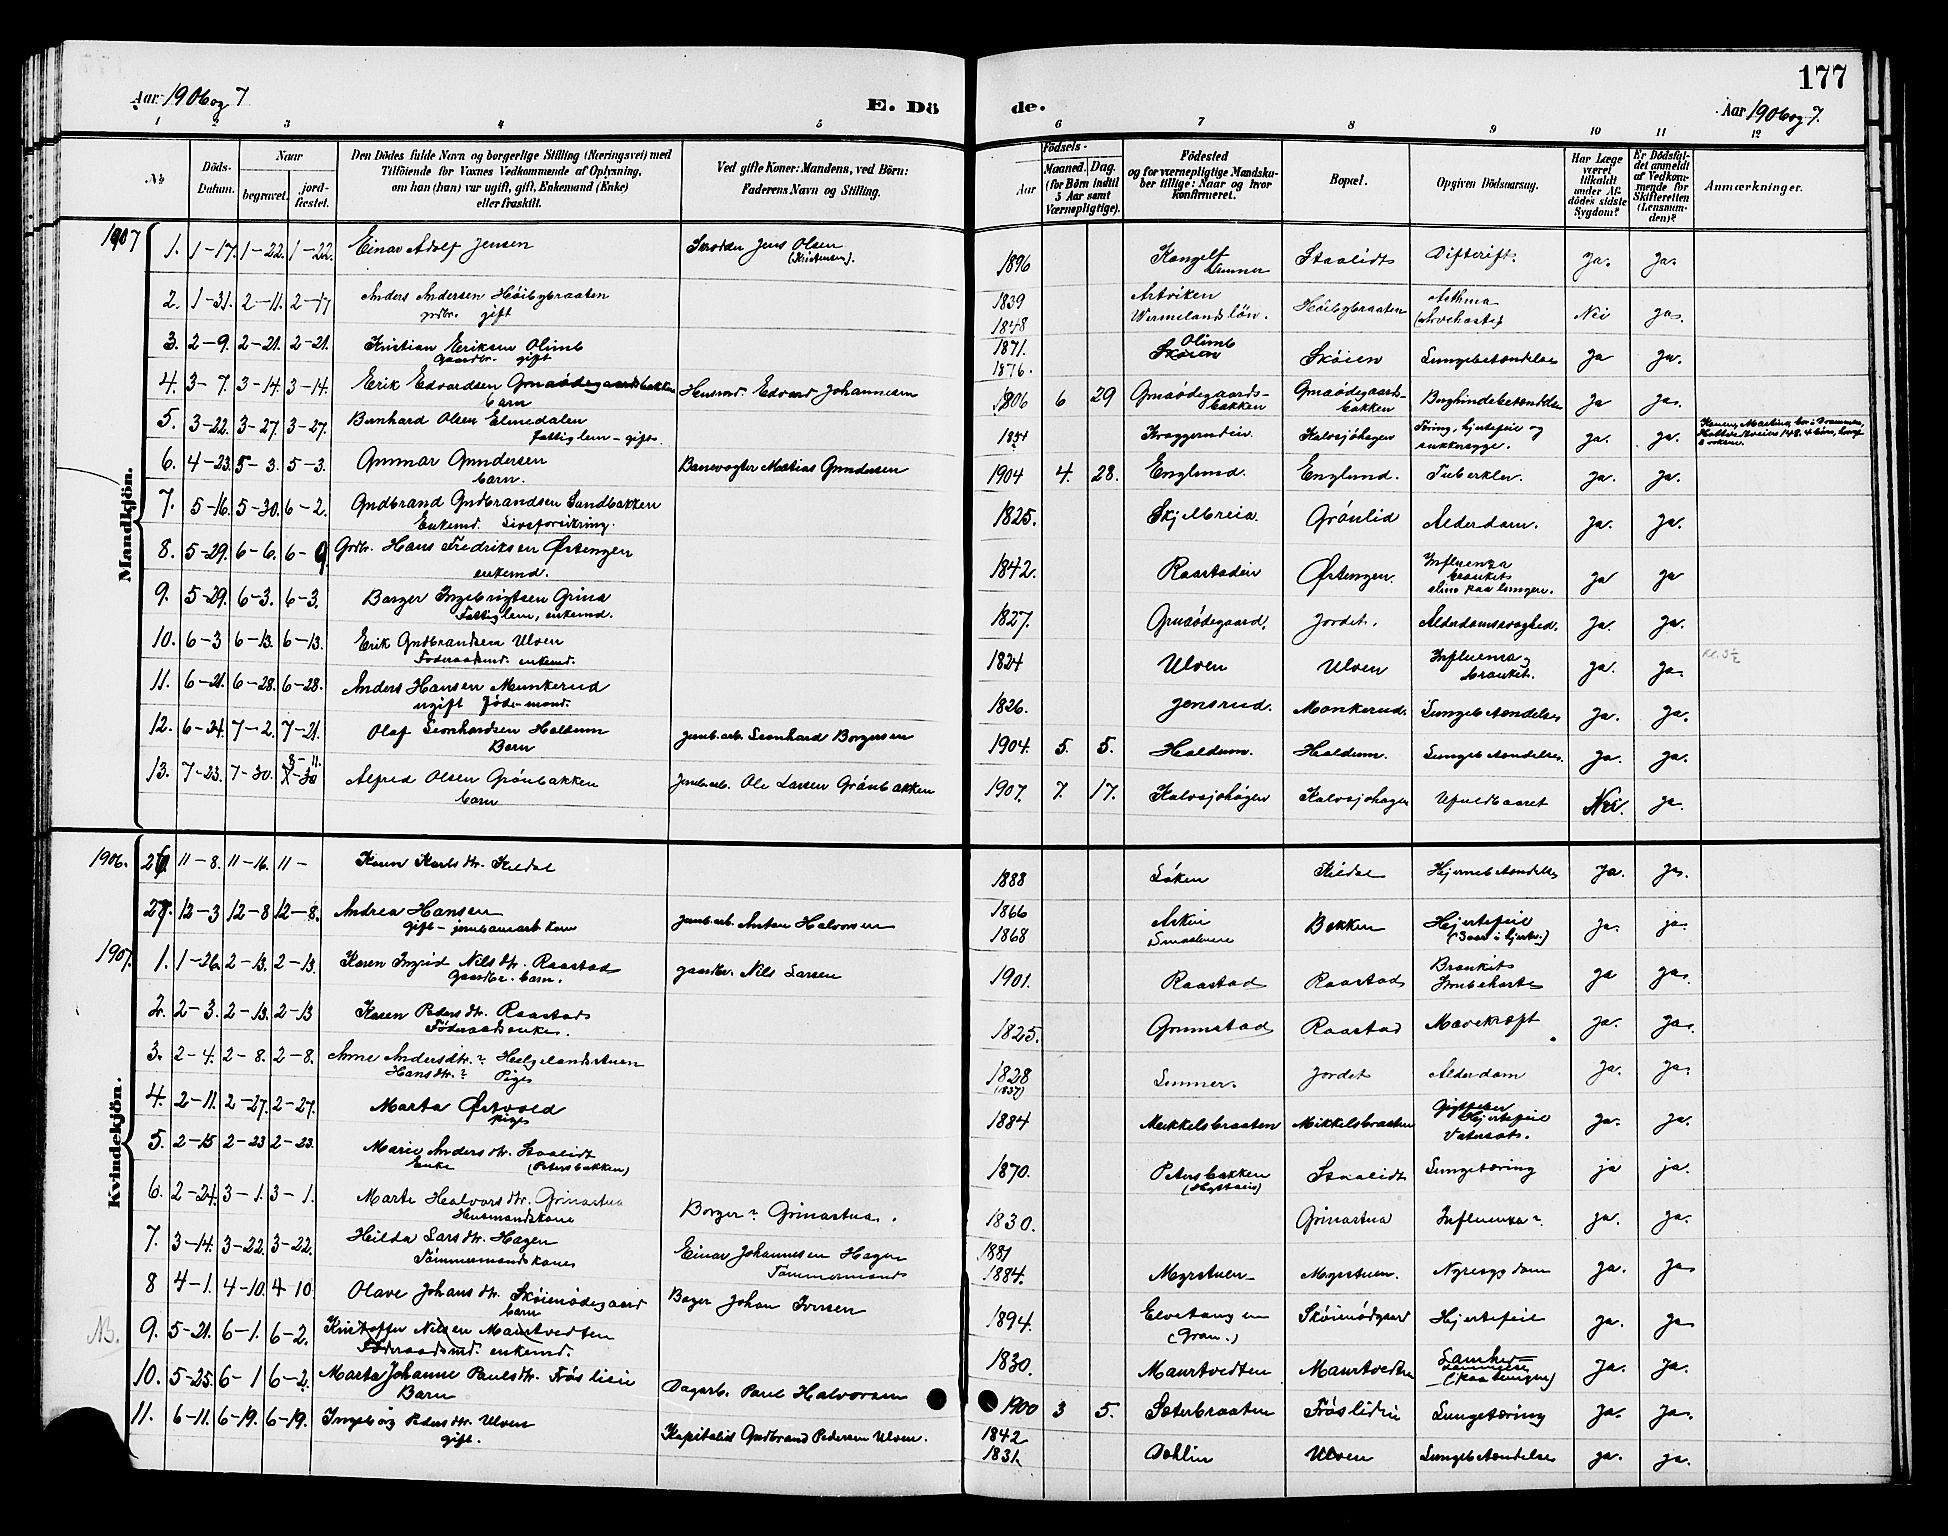 177
Aar 1906 og 7
E. Dö
de.
Aar 1906 og 7.
1 2 3 4 5 6 7 8 9 10 11 12
No.
Döds-Datum.
Naar
begravet.
jord-fæstet.
Den Dödes fulde Navn og borgerlige Stilling (Næringsvei) med
Tilföiende for Voxnes Vedkommende af Oplysning,
om han (hun) var ugift, gift, Enkemand (Enke)
eller fraskilt.
Ved gifte Koner: Mandens, ved Börn:
Faderens Navn og Stilling.
Födsels-
Aar
Maaned. Dag.
(for Börn indtil
5 Aar samt
Værnepligtige).
Födested
og for værnepligtige Mandska-
ber tillige: Naar og hvor
konfirmeret.
Bopæl.
Opgiven Dödsaarsag.
Har Læge
været
tilkaldt
under Af-
dödes sidste
Sygdom?
Er Dödsfal-
det anmeldt
af Vedkom-
mende for
Skifteretten
(Lensman-
den)?
Anmærkninger.
Mandkjön.
1907
1. 1-17. 1-22. 1-22. Einar Adolf Jensen Skrædder Jens Olsen (Kristensen). 1896 Lunner Staalidt Difterift. Ja. Ja.
2. 1-31. 2-11. 2-17 Anders Andersen Höibybraaten gdbr. gift 1839 1848 Artviken Wermelandslön. Höibybraaten Asthma Nei Ja.
3. 2-9. 2-21. 2-21. Kristian Eriksen Olimb Gaardbr. gift 1871. 1876. Olimb Skøien Lungebetændelse Ja Ja.
4. 3-7. 3-14. 3-14. Erik Edvardsen Gruaødegaardsbakken barn Husmd. Edvard Johannesen 1906 6 29 Gruaødegaards-bakken Gruaødegaards-bakken Bughindebetændelse Ja Ja.
5. 3-22. 3-27. 3-27. Bernhard Olsen Elmedalen Fattiglem - gift. Kalvsjöhagen Tæring, hjertefeil og Ja. Ja.
6. 4-23. 5-3. 5-3. Gunnar Gundersen barn. Banevogter Matias Gundersen 1904 4. 28. Englund. Englund. Tuberkler. Ja. Ja.
7. 5-16. 5-30. 6-2. Gudbrand Gudbrandsen Sandbakken Enkemd. Livsforsikring. 1825. Skjelbreia. Grönlid Alderdom. Ja. Ja.
8. 5-29. 6-6. 6-9 Grdbr. Hans Fredriksen Østengen enkemd. 1842. Raastadeie Østengen. Influenza bronkits slim paa lungen. Ja Ja
9. 5-29. 6-3. 6-3. Borger Ingebrigtsen Grina Fattiglem, enkemd. 1827. Gruaödegaard. Jordet. Alderdomssvaghed. Ja. Ja.
10. 6-3 6-13. 6-13. Erik Gudbrandsen Ulven Føderaadsmd. enkemd. 1824 Ulven Ulven Influenza, bronkit. Ja. Ja
11. 6-21. 6-28. 6-28. Anders Hansen Munkerud ugift 1826. Jensrud. Monkerud. Lungebetændelse Ja. Ja.
12. 6-24. 7-2. 7-21. Olaf Leonhardsen Haldum Barn Jernb.arb. Leonhard Borgersen 1904. 5. 5. Haldum. Haldum. Lungebetændelse. Ja. Ja.
13. 7-23. 7-30. 8-11. Alfred Olsen Grönbakken barn Jernb.arb. Ole Larsen Grönbakken 1907. 7. 17. Kalvsjöhagen Kalvsjöhagen Ufuldbaaret Nei. Ja.
Kvindekjön.
1906. 26. 11-8. 11-16. 11- Karen Karlsdtr. Kildal 1888 Søken Kildal Hjernebetændelse Ja. Ja.
27. 12-3 12-8 12-8. Andrea Hansen Gift - jernbanearb. kone Jernb.arb. Anton Halvorsen 1866 1868 Askim Smaalenene Bakken Hjertefeil Ja. ja.
1907. 1. 1-26. 2-13. 2-13. Karen Ingrid Nilsdtr. Raastad Gaardbr. barn. gaardbr. Nils Larsen 1901. Raastad Raastad Bronkits Strubehoste Ja Ja.
2. 2-3. 2-13. 2-13 Karen Pedersdtr. Raastad Føderaadsenke. 1825. Grumstad Raastad Mavekræft Ja. Ja.
3. 2-4. 2-8. 2-8. Anne Andersdtr.? Helgelandsstuen Hansdtr.? Pige 1828 (1837) Lunner. Jordet Alderdom Ja. Ja.
4. 2-11. 2-27. 2-27. Marta Østvold pige 1884 Mikkelsbraaten Mikkelsbraaten Gigtfeber Hjertefeil Vatersot. Ja. Ja.
5. 2-15 2-23 2-23. Marie Andersdtr. Staalidt Enke (Petersbakken) 1870. Petersbakken Staalidt Lungetæring ja ja.
6. 2-24. 3-1. 3-1. Marte Halvorsdtr. Grinastua Husmandskone Borger? Grinastua. 1830. Grinastua Influenza?. Ja. Ja.
7. 3-14. 3-22. 3-22. Hilda Larsdtr. Hagen Tömmermandskone Einar Johannesen Hagen Tömmermand 1881 1884. Myrstuen Myrstuen. Nyresygdom Ja. Ja
8 4-1. 4-10. 4-10. Olave Johansdtr. Skøienødegaard barn Bager Johan Iversen 1894. Elvetangen (Gran.) Skøienødgaard Hjertefeil Ja. Ja
NB. 9. 5-21. 6-1. 6-2. Kristoffer Nilsen Maurtvedten Føderaadsmd. enkemd. 1830. Maurtvedten Maurtvedten (paa lungen) Ja. Ja.
10. 5-25. 6-1 6-2. Marta Johanne Paulsdtr. Fröslieie Barn Dagarb. Paul Halvorsen 1900 3 5. Sæterbraaten Fröslideie Lungetæring Ja. Ja.
11. 6-11. 6-19. 6-19. Ingeborg Pedersdtr. Ulven gift. Kapitalist Gudbrand Pedersen Ulven. 1842 1831. Dæhlin Ulven Lungebetændelse Ja Ja.